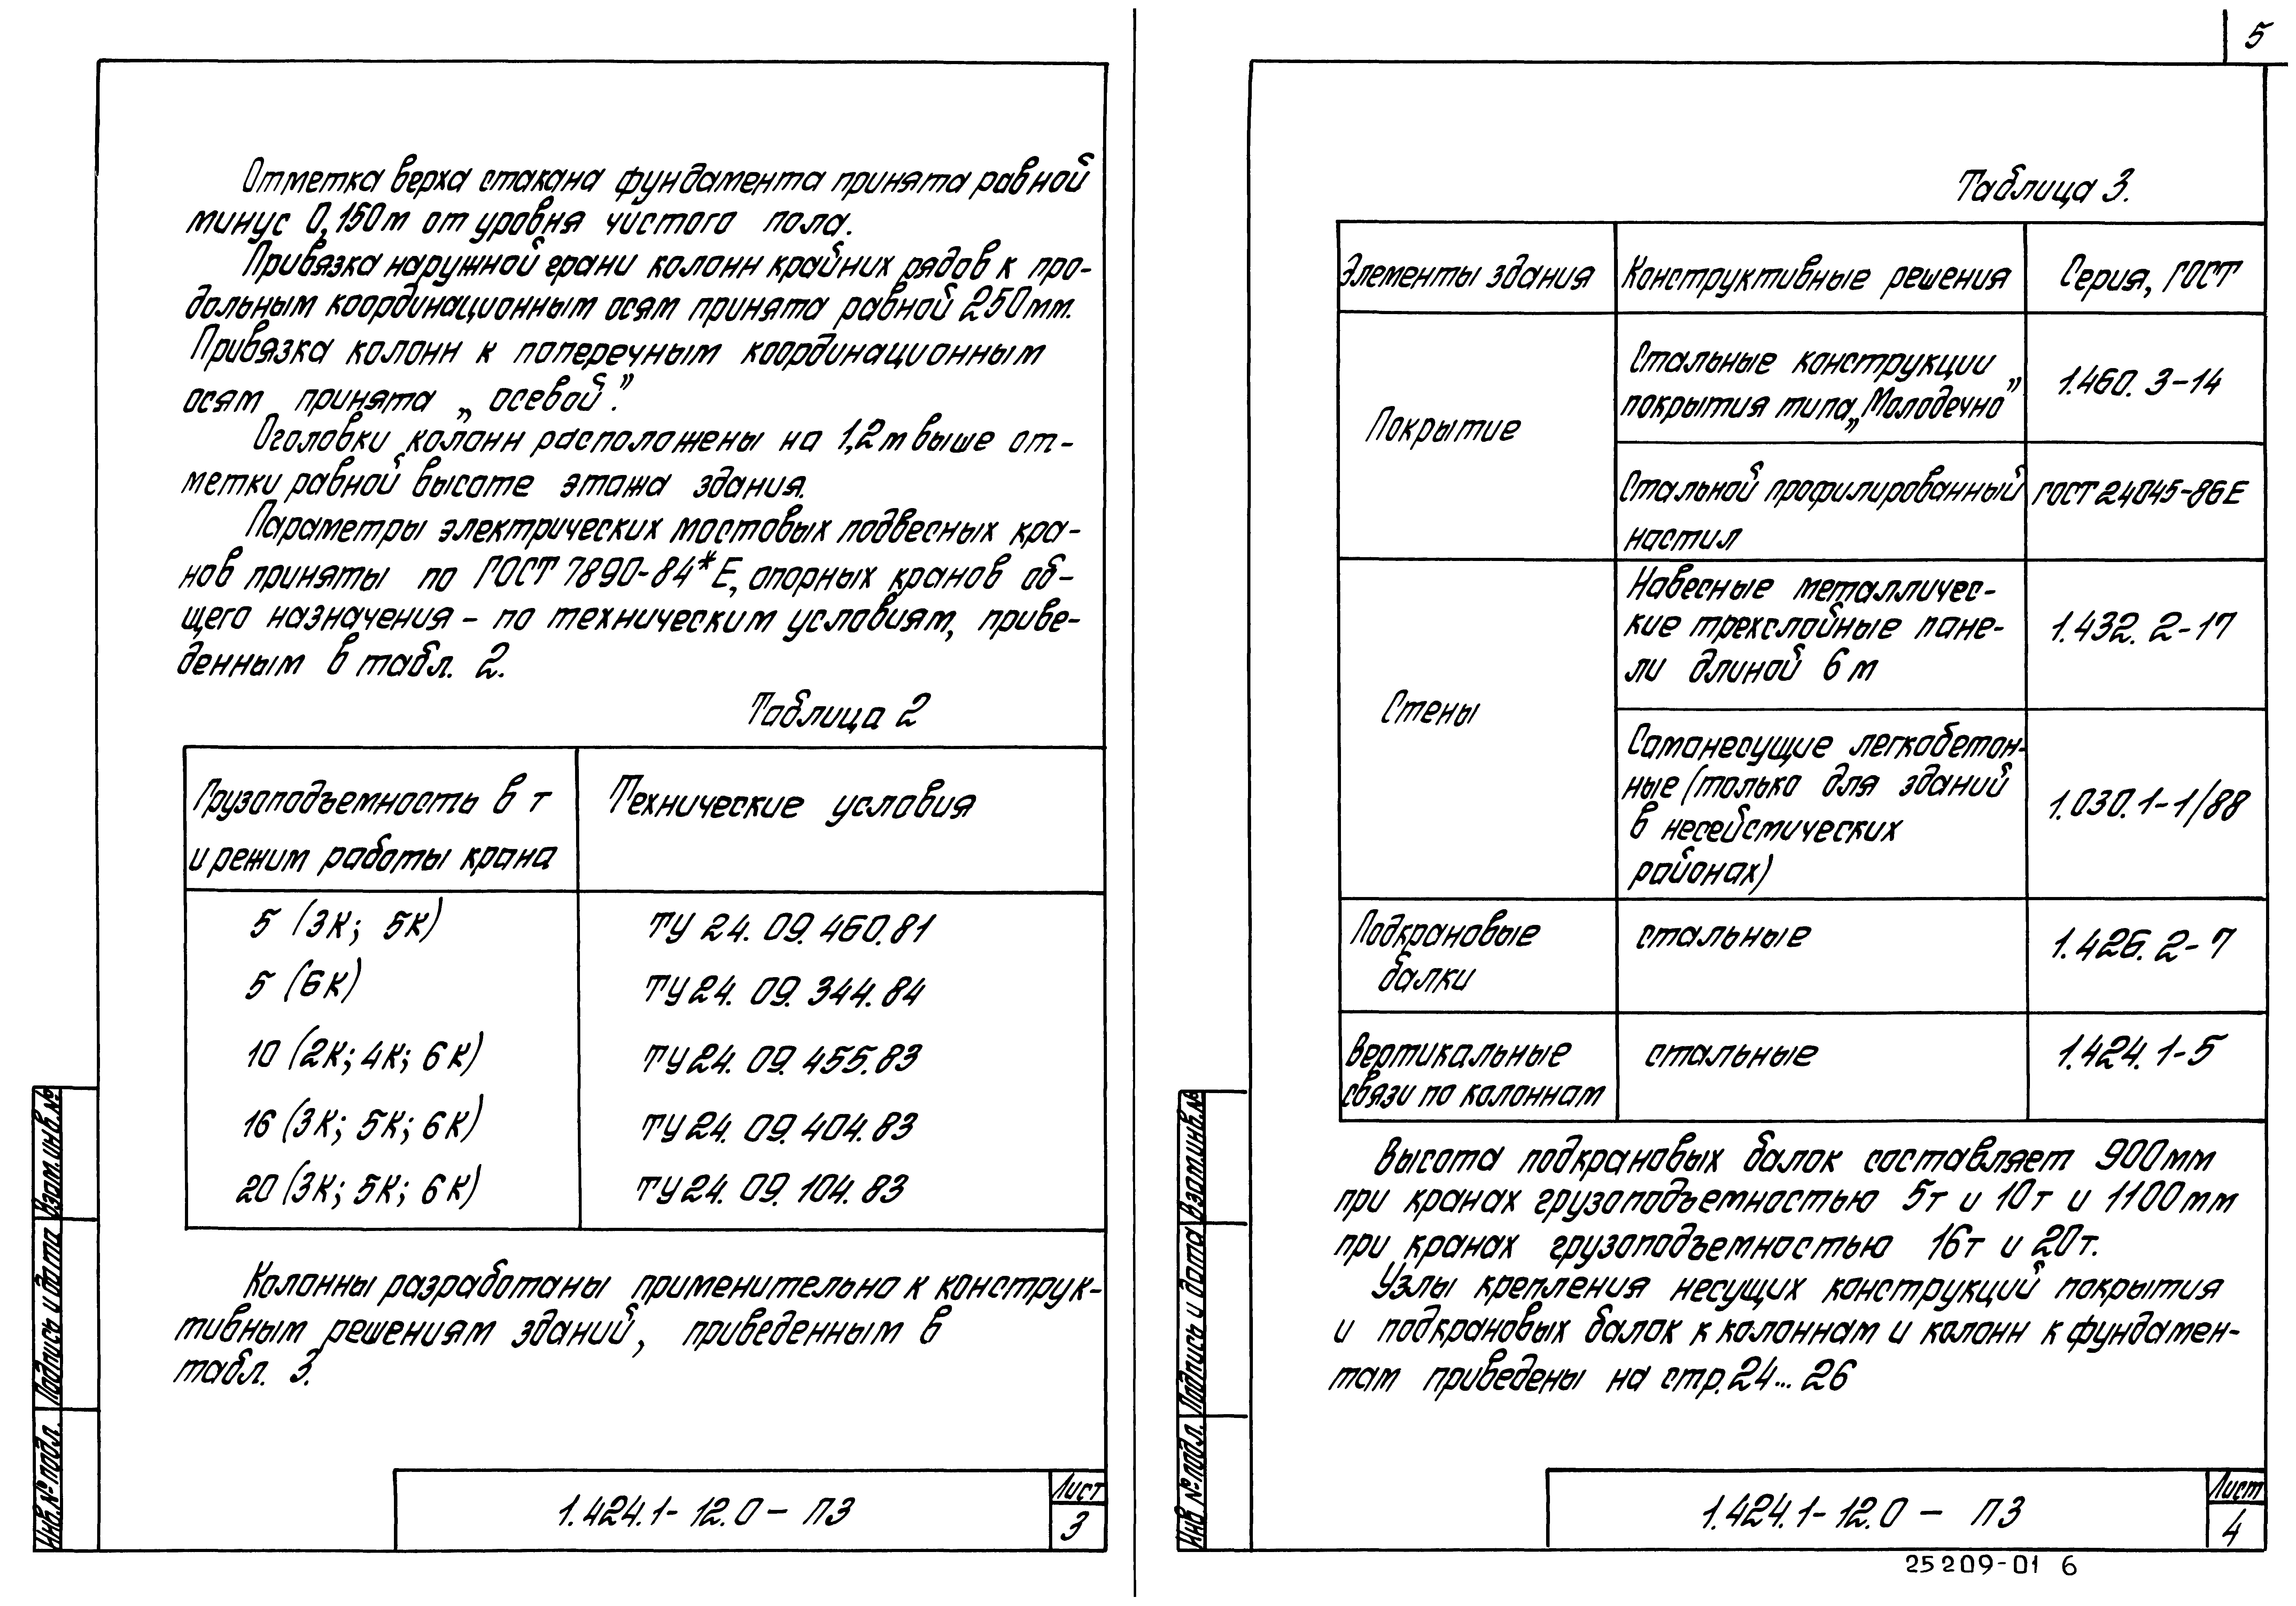 5
Отметка верха стакана фундамента принята равной
минус 0,150м от уровня чистого пола.
Привязка наружной грани колонн крайних рядов к про-
дольным координационным осям принята равной 250мм.
Привязка колонн к поперечным координационным
осям принята „осевой".
Оголовки колонн расположены на 1,2м выше от-
метки равной высоте этажа здания.
Параметры электрических мостовых подвесных кра-
нов приняты по ГОСТ 7890-84*Е, опорных кранов об-
щего назначения - по техническим условиям, приве-
денным в табл. 2.
Таблица 2
Грузоподъемность в т
и режим работы крана
Технические условия
5 (3К; 5К)
ТУ 24. 09. 460.81
5 (6К)
ТУ 24. 09. 344.84
10 (2К; 4К; 6К)
ТУ 24. 09. 455.83
16 (3К; 5К; 6К)
ТУ 24. 09. 404.83
20 (3К; 5К; 6К)
ТУ 24. 09. 104.83
Колонны разработаны применительно к конструк-
тивным решениям зданий, приведенным в
табл. 3.
Инв.№ подл.
Подпись и дата
Взам.инв.№
1.424.1-12.0 - ПЗ
Лист
3
Таблица 3.
Элементы здания
Конструктивные решения
Серия, ГОСТ
Покрытие
Стальные конструкции
покрытия типа „Молодечно"
1.460. 3-14
Стальной профилированный
настил
ГОСТ 24045-86Е
Стены
Навесные металличес-
кие трехслойные пане-
ли длиной 6 м
1.432. 2-17
Самонесущие легкобетон-
ные (только для зданий
в несейсмических
районах)
1.030.1-1/88
Подкрановые
балки
стальные
1.426. 2-7
Вертикальные
связи по колоннам
стальные
1.424. 1-5
Высота подкрановых балок составляет 900мм
при кранах грузоподъемностью 5т и 10т и 1100мм
при кранах грузоподъемностью 16т и 20т.
Узлы крепления несущих конструкций покрытия
и подкрановых балок к колоннам и колонн к фундамен-
там приведены на стр.24...26
Инв.№ подл.
Подпись и дата
Взам.инв.№
1.424.1-12.0 - ПЗ
Лист
4
25209-01 6